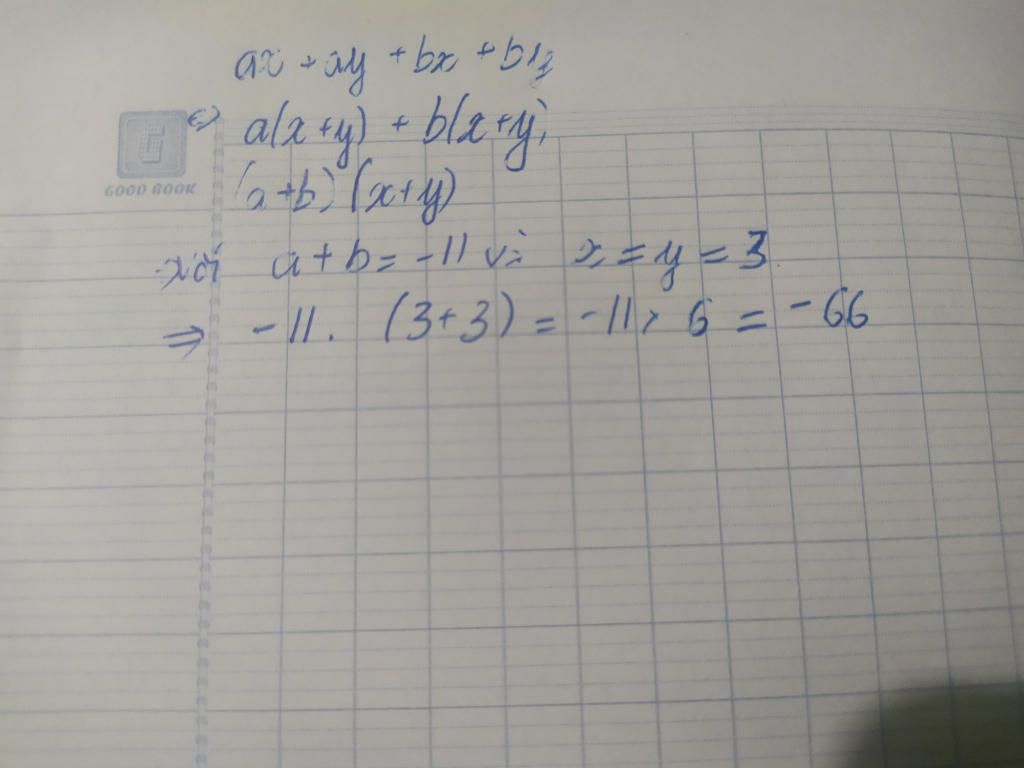 ax + ay + bx + by
⇔ a(x+y) + b(x+y)
GOOD BOOK
(a+b) (x+y)
với a + b = -11 và x = y = 3
⇒ -11. (3+3) = -11. 6 = -66